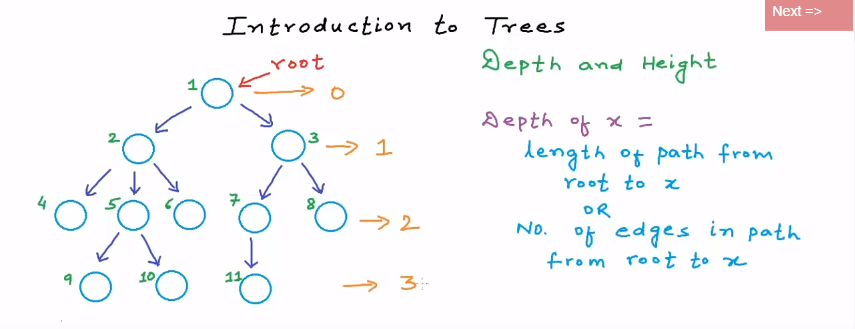 Next =>
Introduction to Trees
root
1
0
2
3
1
4
5
6
7
8
2
9
10
11
3
Depth and Height
Depth of x =
length of path from
root to x
OR
No. of edges in path
from root to x